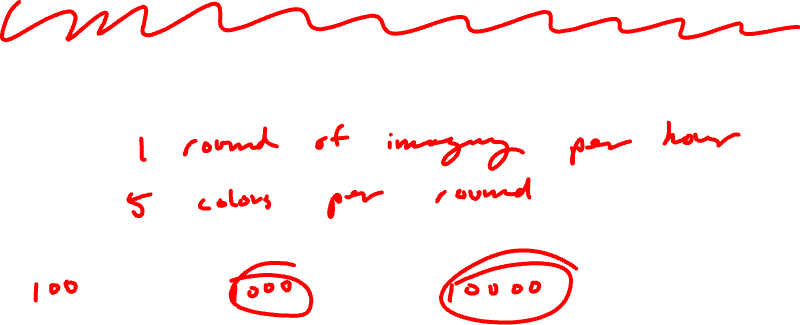 1 round of imaging per hour
5 colors per round
100 1000 10000